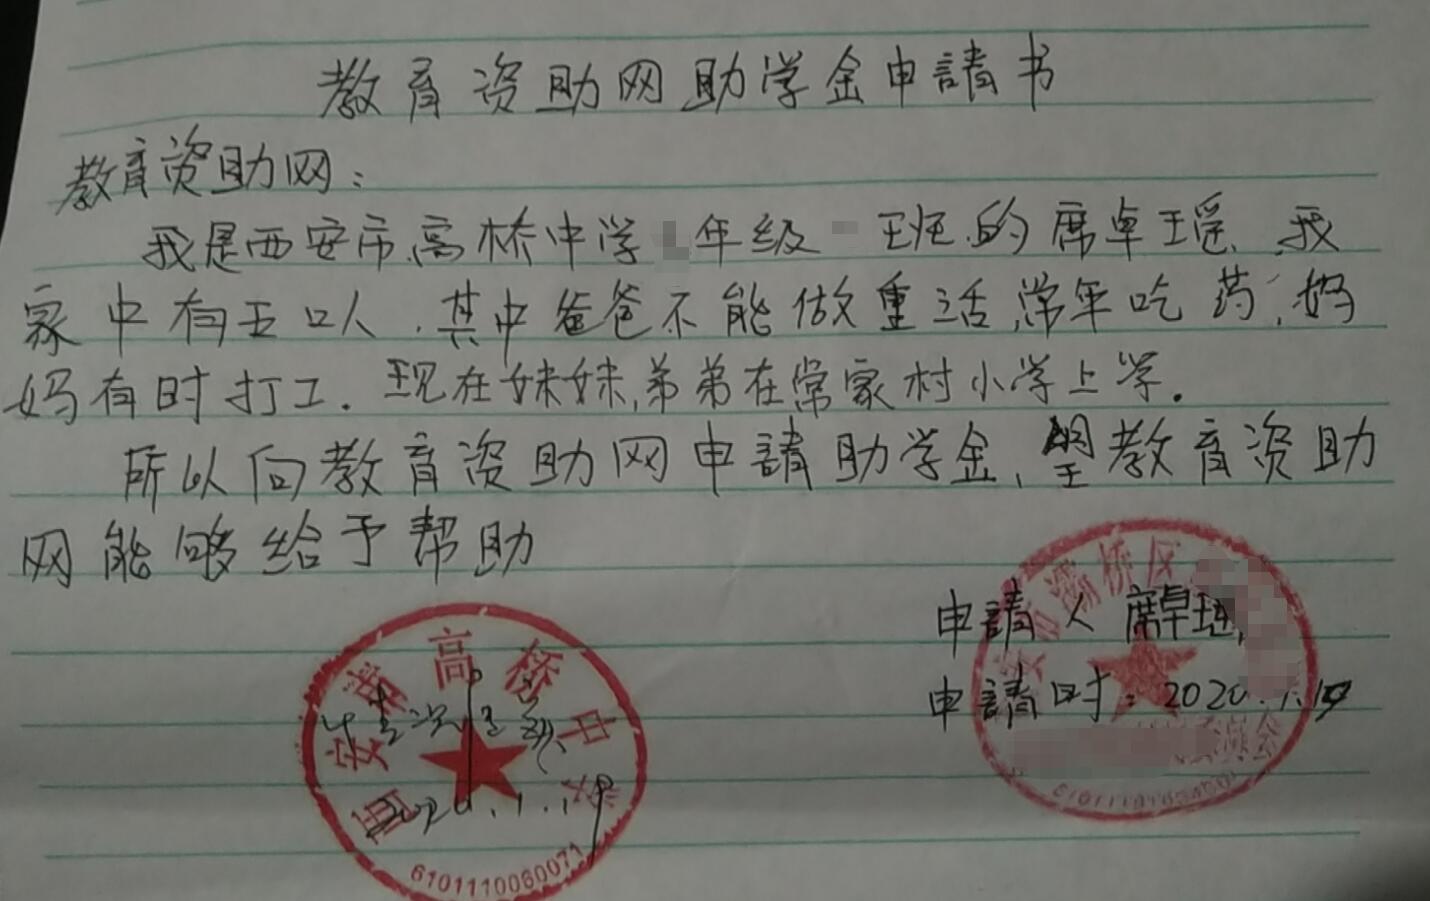 教育资助网助学金申請书
教育资助网：
我是西安市高桥中学 年级 班的席卓瑶，我
家中有五口人，其中爸爸不能做重活，常年吃药，妈
妈有时打工．现在妹妹，弟弟在常家村小学上学．
所以向教育资助网申請助学金，望教育资助
网能够给予帮助
申請人 席卓瑶
申請时：2020.1.19
西安市高桥中学
情况属实
2020.1.19
6101110060071
灞桥区